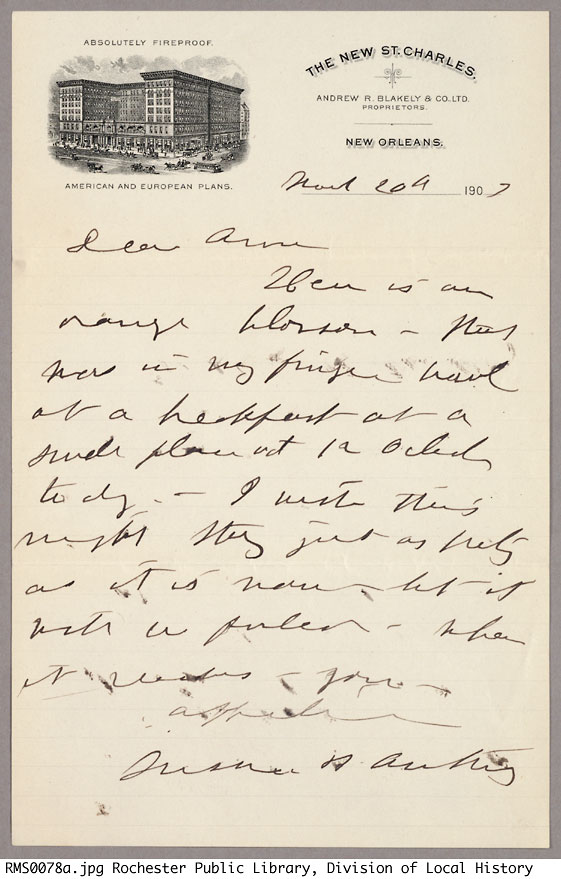 ABSOLUTELY FIREPROOF.
AMERICAN AND EUROPEAN PLANS.
THE NEW ST. CHARLES.
ANDREW R. BLAKELY & CO. LTD.
PROPRIETORS.
NEW ORLEANS.
20th 1903
Dear Anna
Here is an
orange blossom - that
was in my finger bowl
at a breakfast at a
place at 12 Oclock
to day. - I wish this
might stay just as pretty
as it is now - but it
will be - when
it reaches - you -
Susan B Anthony
RMS0078a.jpg Rochester Public Library, Division of Local History